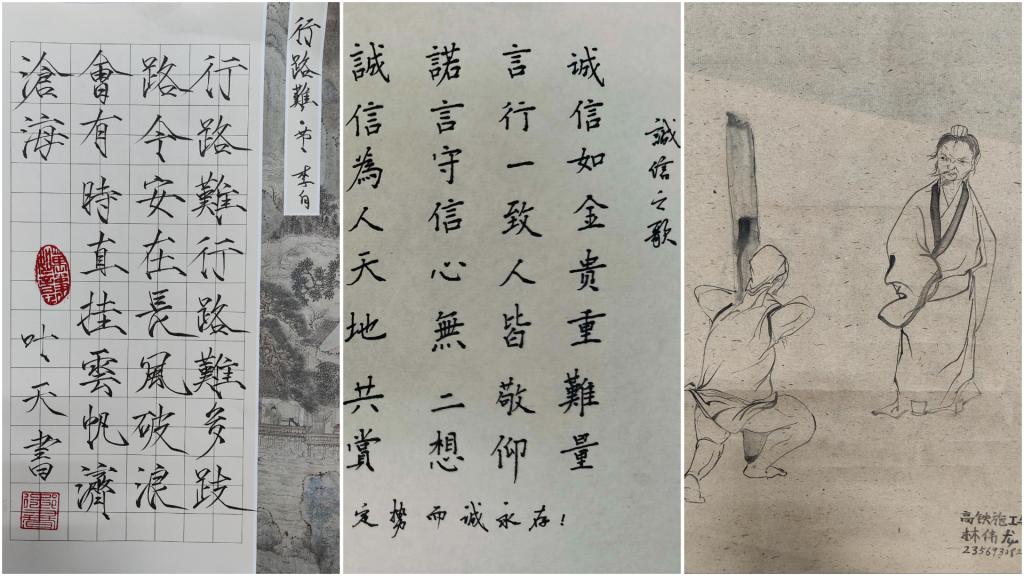 行路難 李白
行路難行路難多跂
路今安在長風破浪
會有時直挂雲帆濟
滄海
叶天書
誠信之歌
诚信如金贵重難量
言行一致人皆敬仰
諾言守信心無二想
誠信為人天地共賞
而诚永存!
高铁
林伟龙